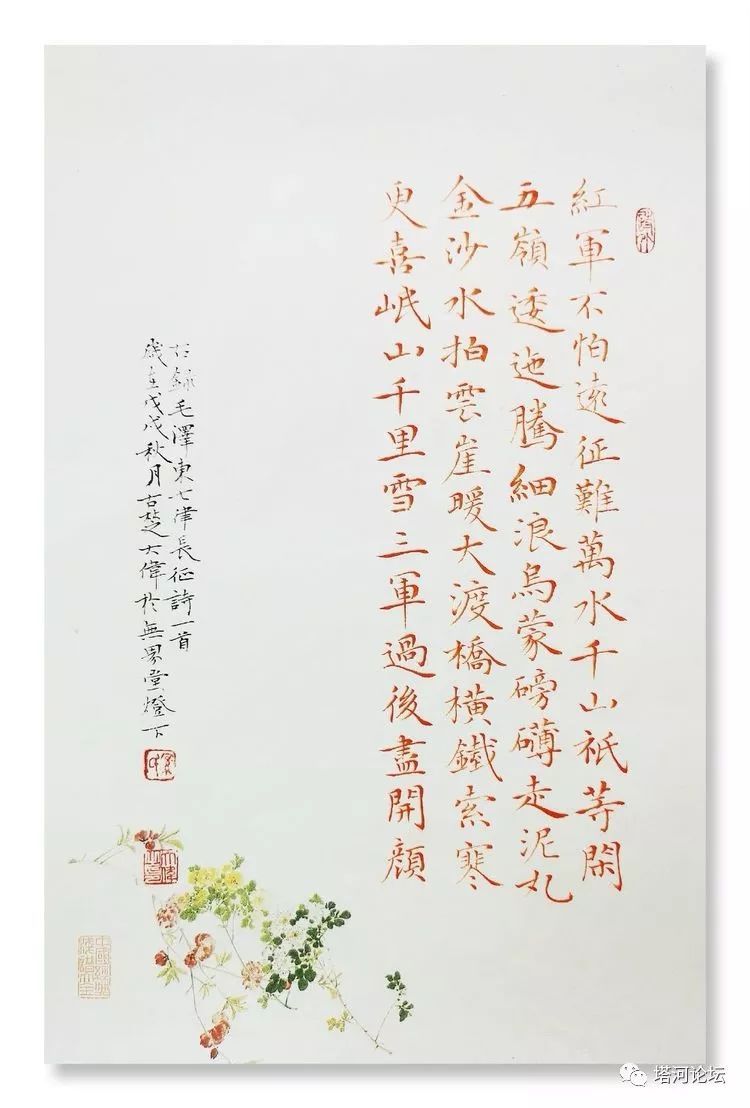 紅軍不怕遠征難萬水千山祇等閑
五嶺逶迤騰細浪烏蒙磅礴走泥丸
金沙水拍雲崖暖大渡橋橫鐵索寒
更喜岷山千里雪三軍過後盡開顏
錄毛澤東七律長征詩一首
歲在戊戌秋月古楚大偉於無界堂燈下
塔河论坛